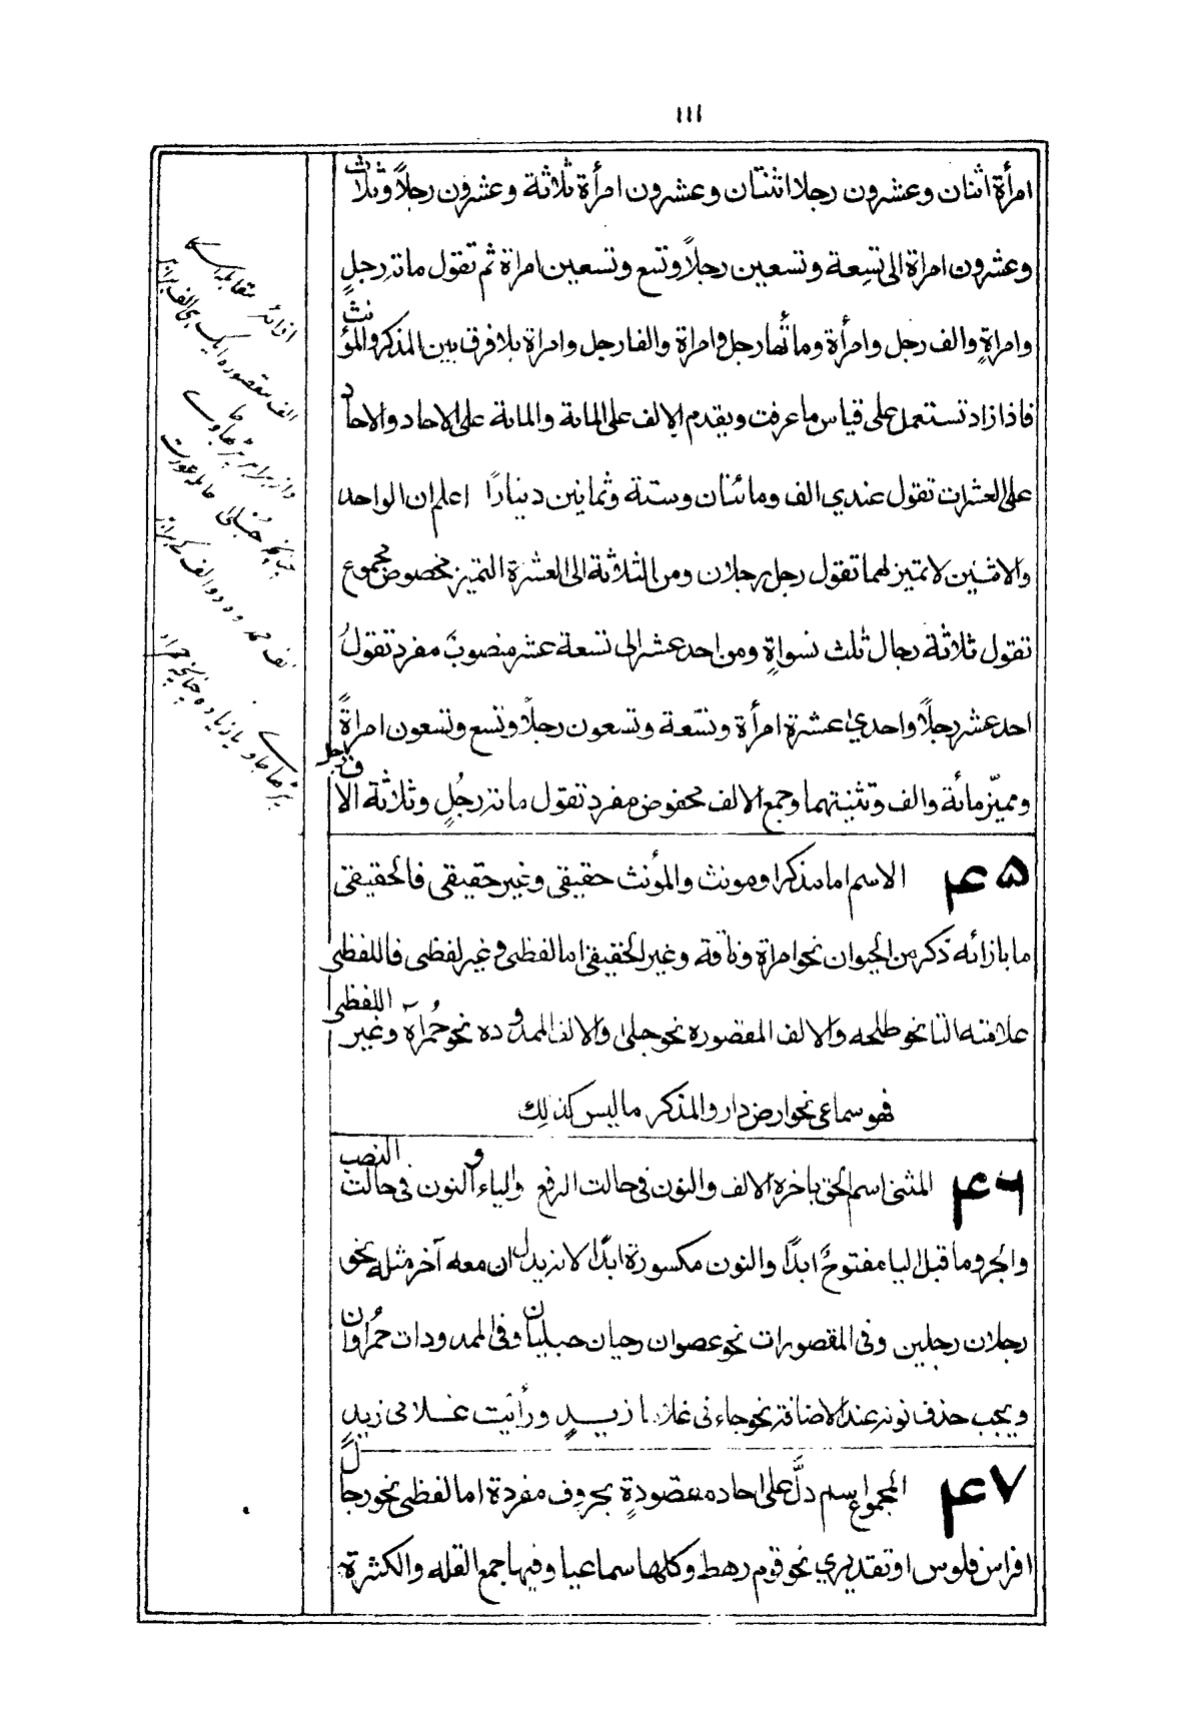 ١١١
امرأة اثنان وعشرون رجلا اثنتان وعشرون امرأة ثلاثة وعشرون رجلاً وثلاث
وعشرون امراة الى تسِعة وتسعين رجلاً وتسع وتسعين امراة ثم تقول مائة رجلٍ
وامراةٍ والف رجل وامرأة ومائتا رجل وامراة والفا رجل وامراة بلا فرق بين المذكر والمؤنث
فاذا زاد تستعمل على قياس ما عرفت ويقدم الالف على المائة والمائة على الاحاد والاحاد
على العشرات تقول عندي الف ومائتان وستة وثمانين دينارًا اعلم ان الواحد
والاثنين لا تميز لهما تقول رجل رجلان ومن الثلاثة الى العشرة التميز مخصوص مجموع
تقول ثلاثة رجال ثلث نسواةٍ ومن احد عشر الى تسعة عشر منصوبٌ مفرد تقولُ
احد عشر رجلًا واحدي عشرة امرأة وتسّعة وتسعون رجلًا وتسع وتسعون امراةً
ومميّز مائة والف وتثنيتهما وجمع الالف مخفوض مفرد تقول مائة رجُلٍ وثلاثة الاف رجل
۴۵ الاسم اما مذكر او مونث والمؤنث حقيقى وغير حقيقى فالحقيقى
ما بازائه ذكر من الحيوان نحو امراة وناقة وغير الحقيقى اما لفظى وغير لفظى فاللفظى
علامته التا نحو طلحه والالف المقصوره نحو حبلى والالف الممدوده نحو حُمرآة وغير اللفظى
فهو سماعى نحو ارض دار والمذكر ما ليس كذلك
۴۶ المثنى اسم الحق باخره الالف والنون فى حالت الرفع والياء والنون فى حالت النصب
والجر وما قبل اليا مفتوحٌ ابدًا والنون مكسورة ابدًا لا نزيد ل ان معه آخر مثله نحو
رجلان رجلين وفى المقصورات نحو عصوان رحيان حبليان وفى الممدودات حُمراوان
ويجب حذف نونه عند الاضافة نحو جاءنى غلاما زيدٍ ورأيت غلامى زيدٍ
۴۷ المجموع اسم دلَّ على احاد مقصودةٍ بحروف مفردة اما لفظى نحو رجالٌ
افراس فلوس او تقديري نحو قوم رهط وكلها سماعيا وفيها جمع القله والكثرة
الف مقصوره ايک
حُبلى حامله عورت